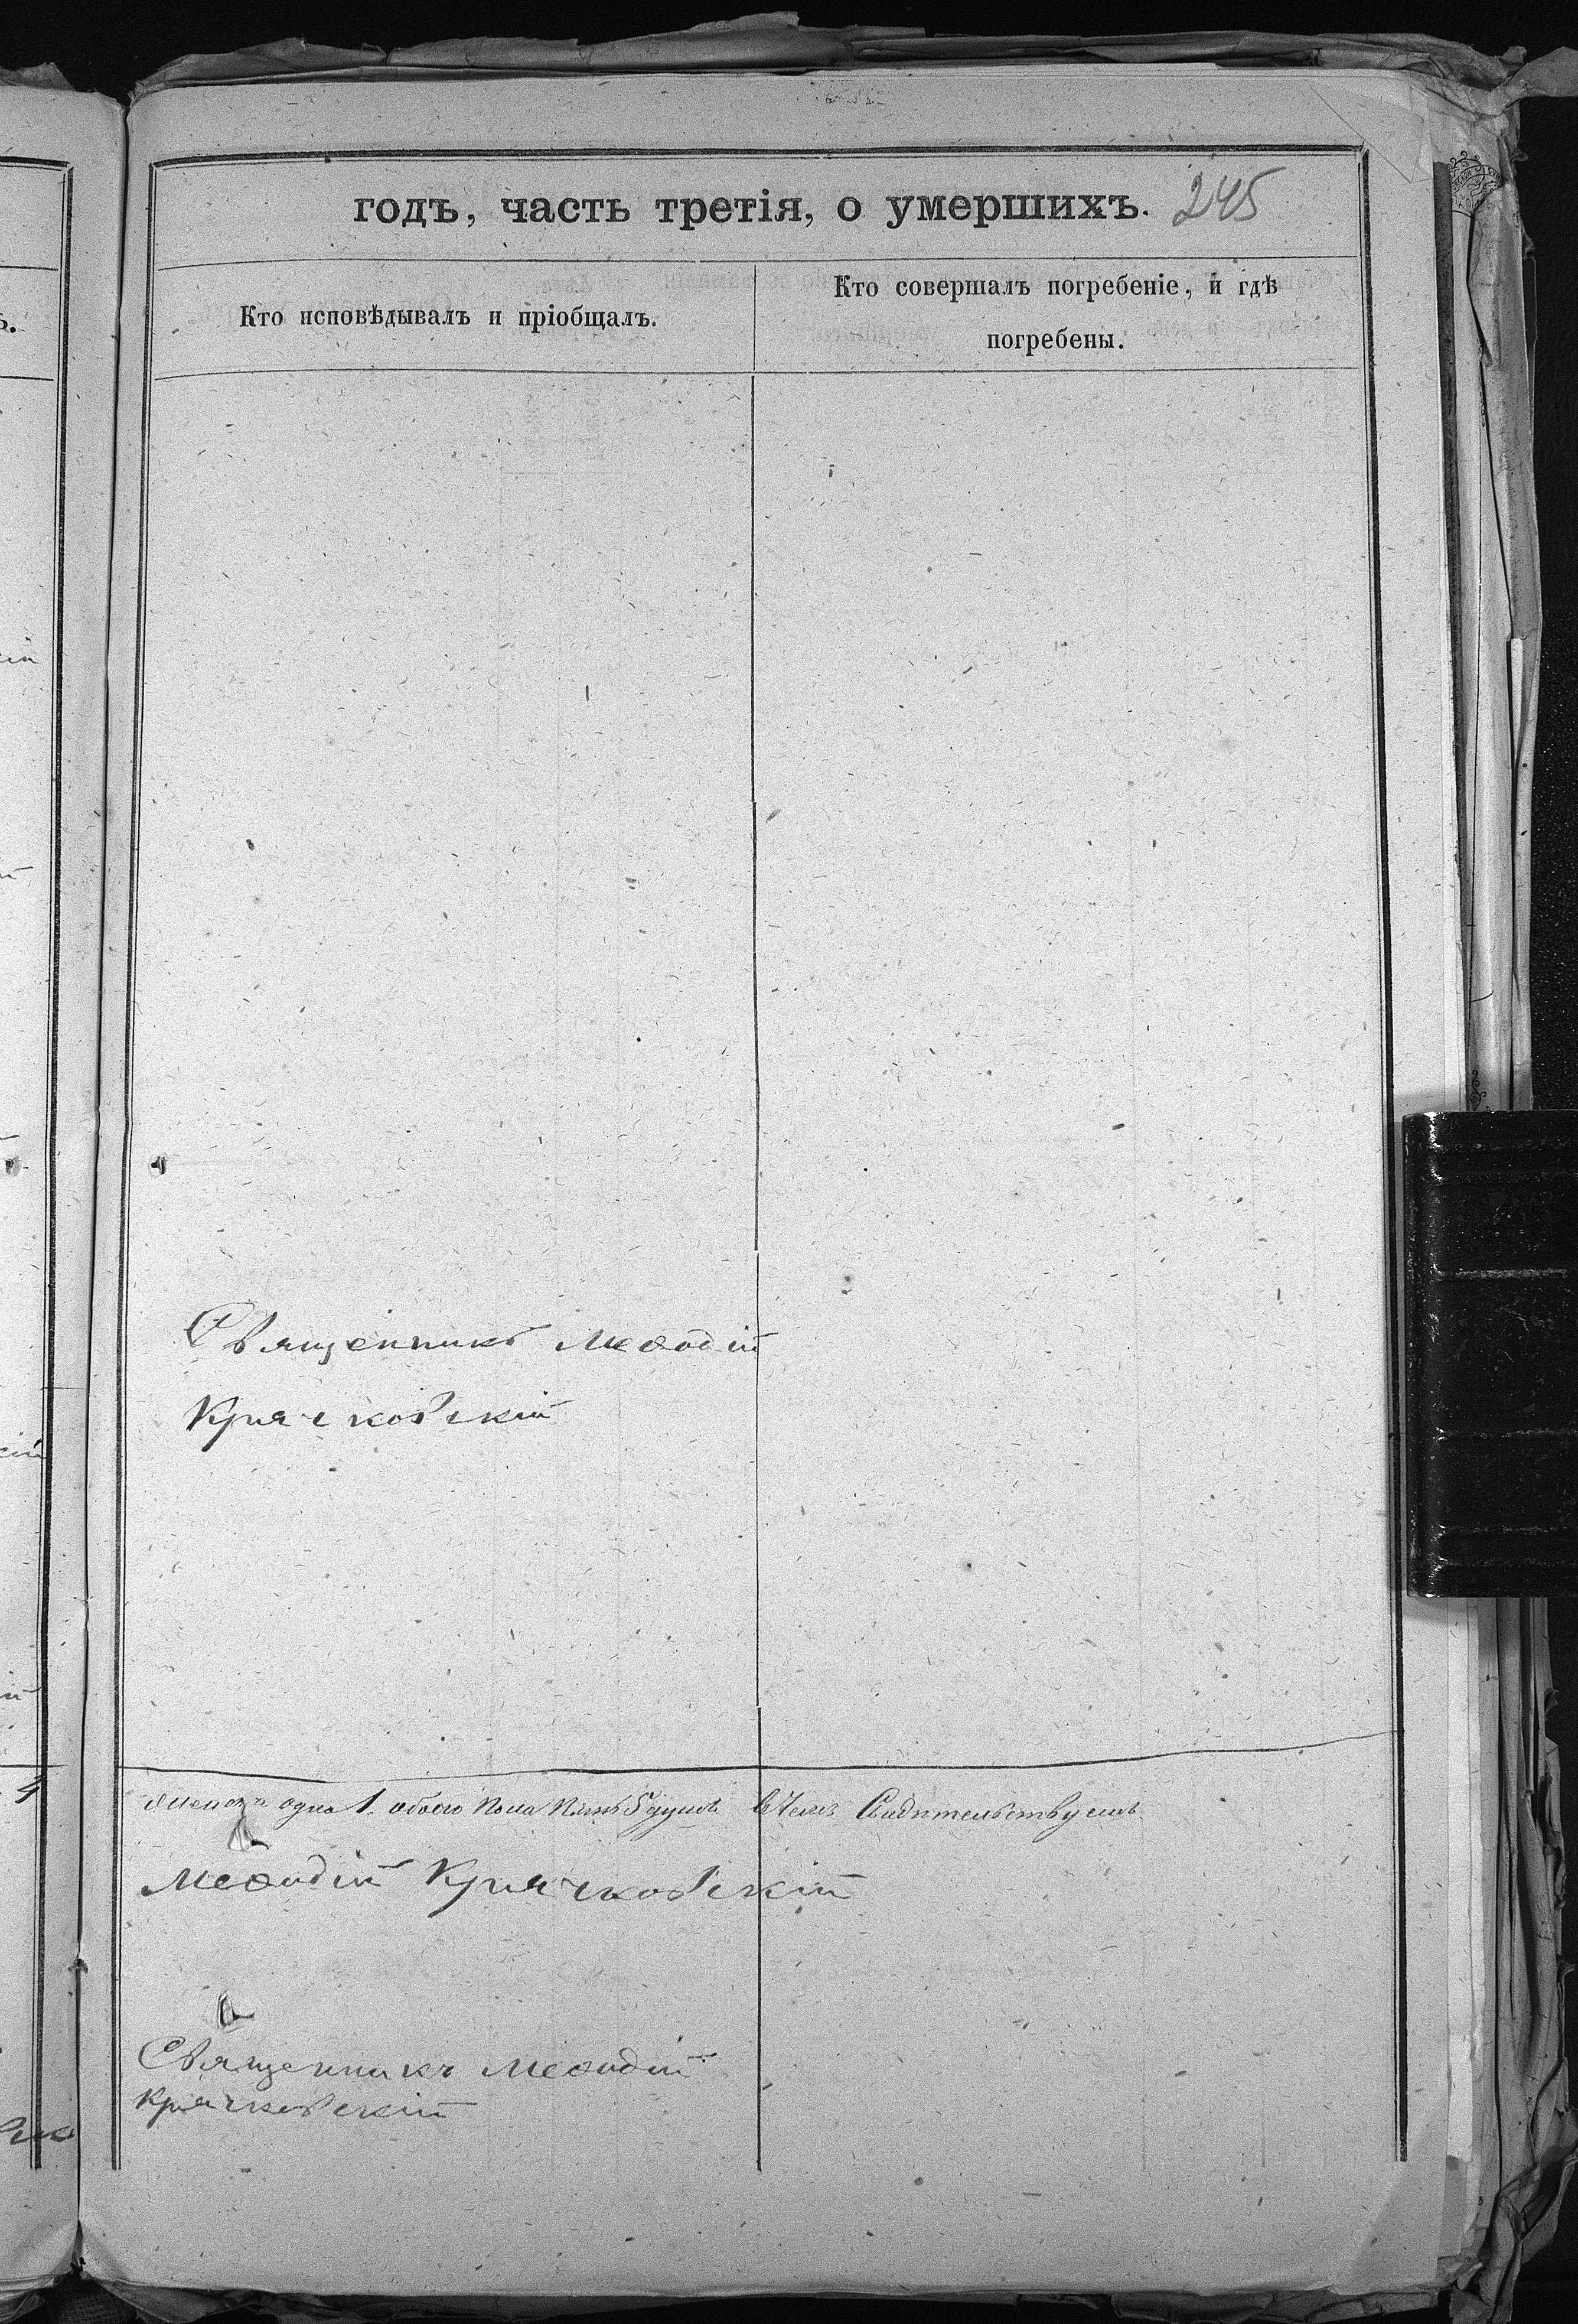 годъ, часть третія, о умершихъ. 245
Кто исповѣдывалъ и пріобщалъ.
Кто совершалъ погребеніе, и гдѣ
погребены.
Священникъ Меѳодій
Крячковскій
одна 1. обоего пола пять 5 душъ въ чемъ Свидѣтельствуемъ
Меѳодій Крячковскій
Священникъ Меѳодій
Крячковскій